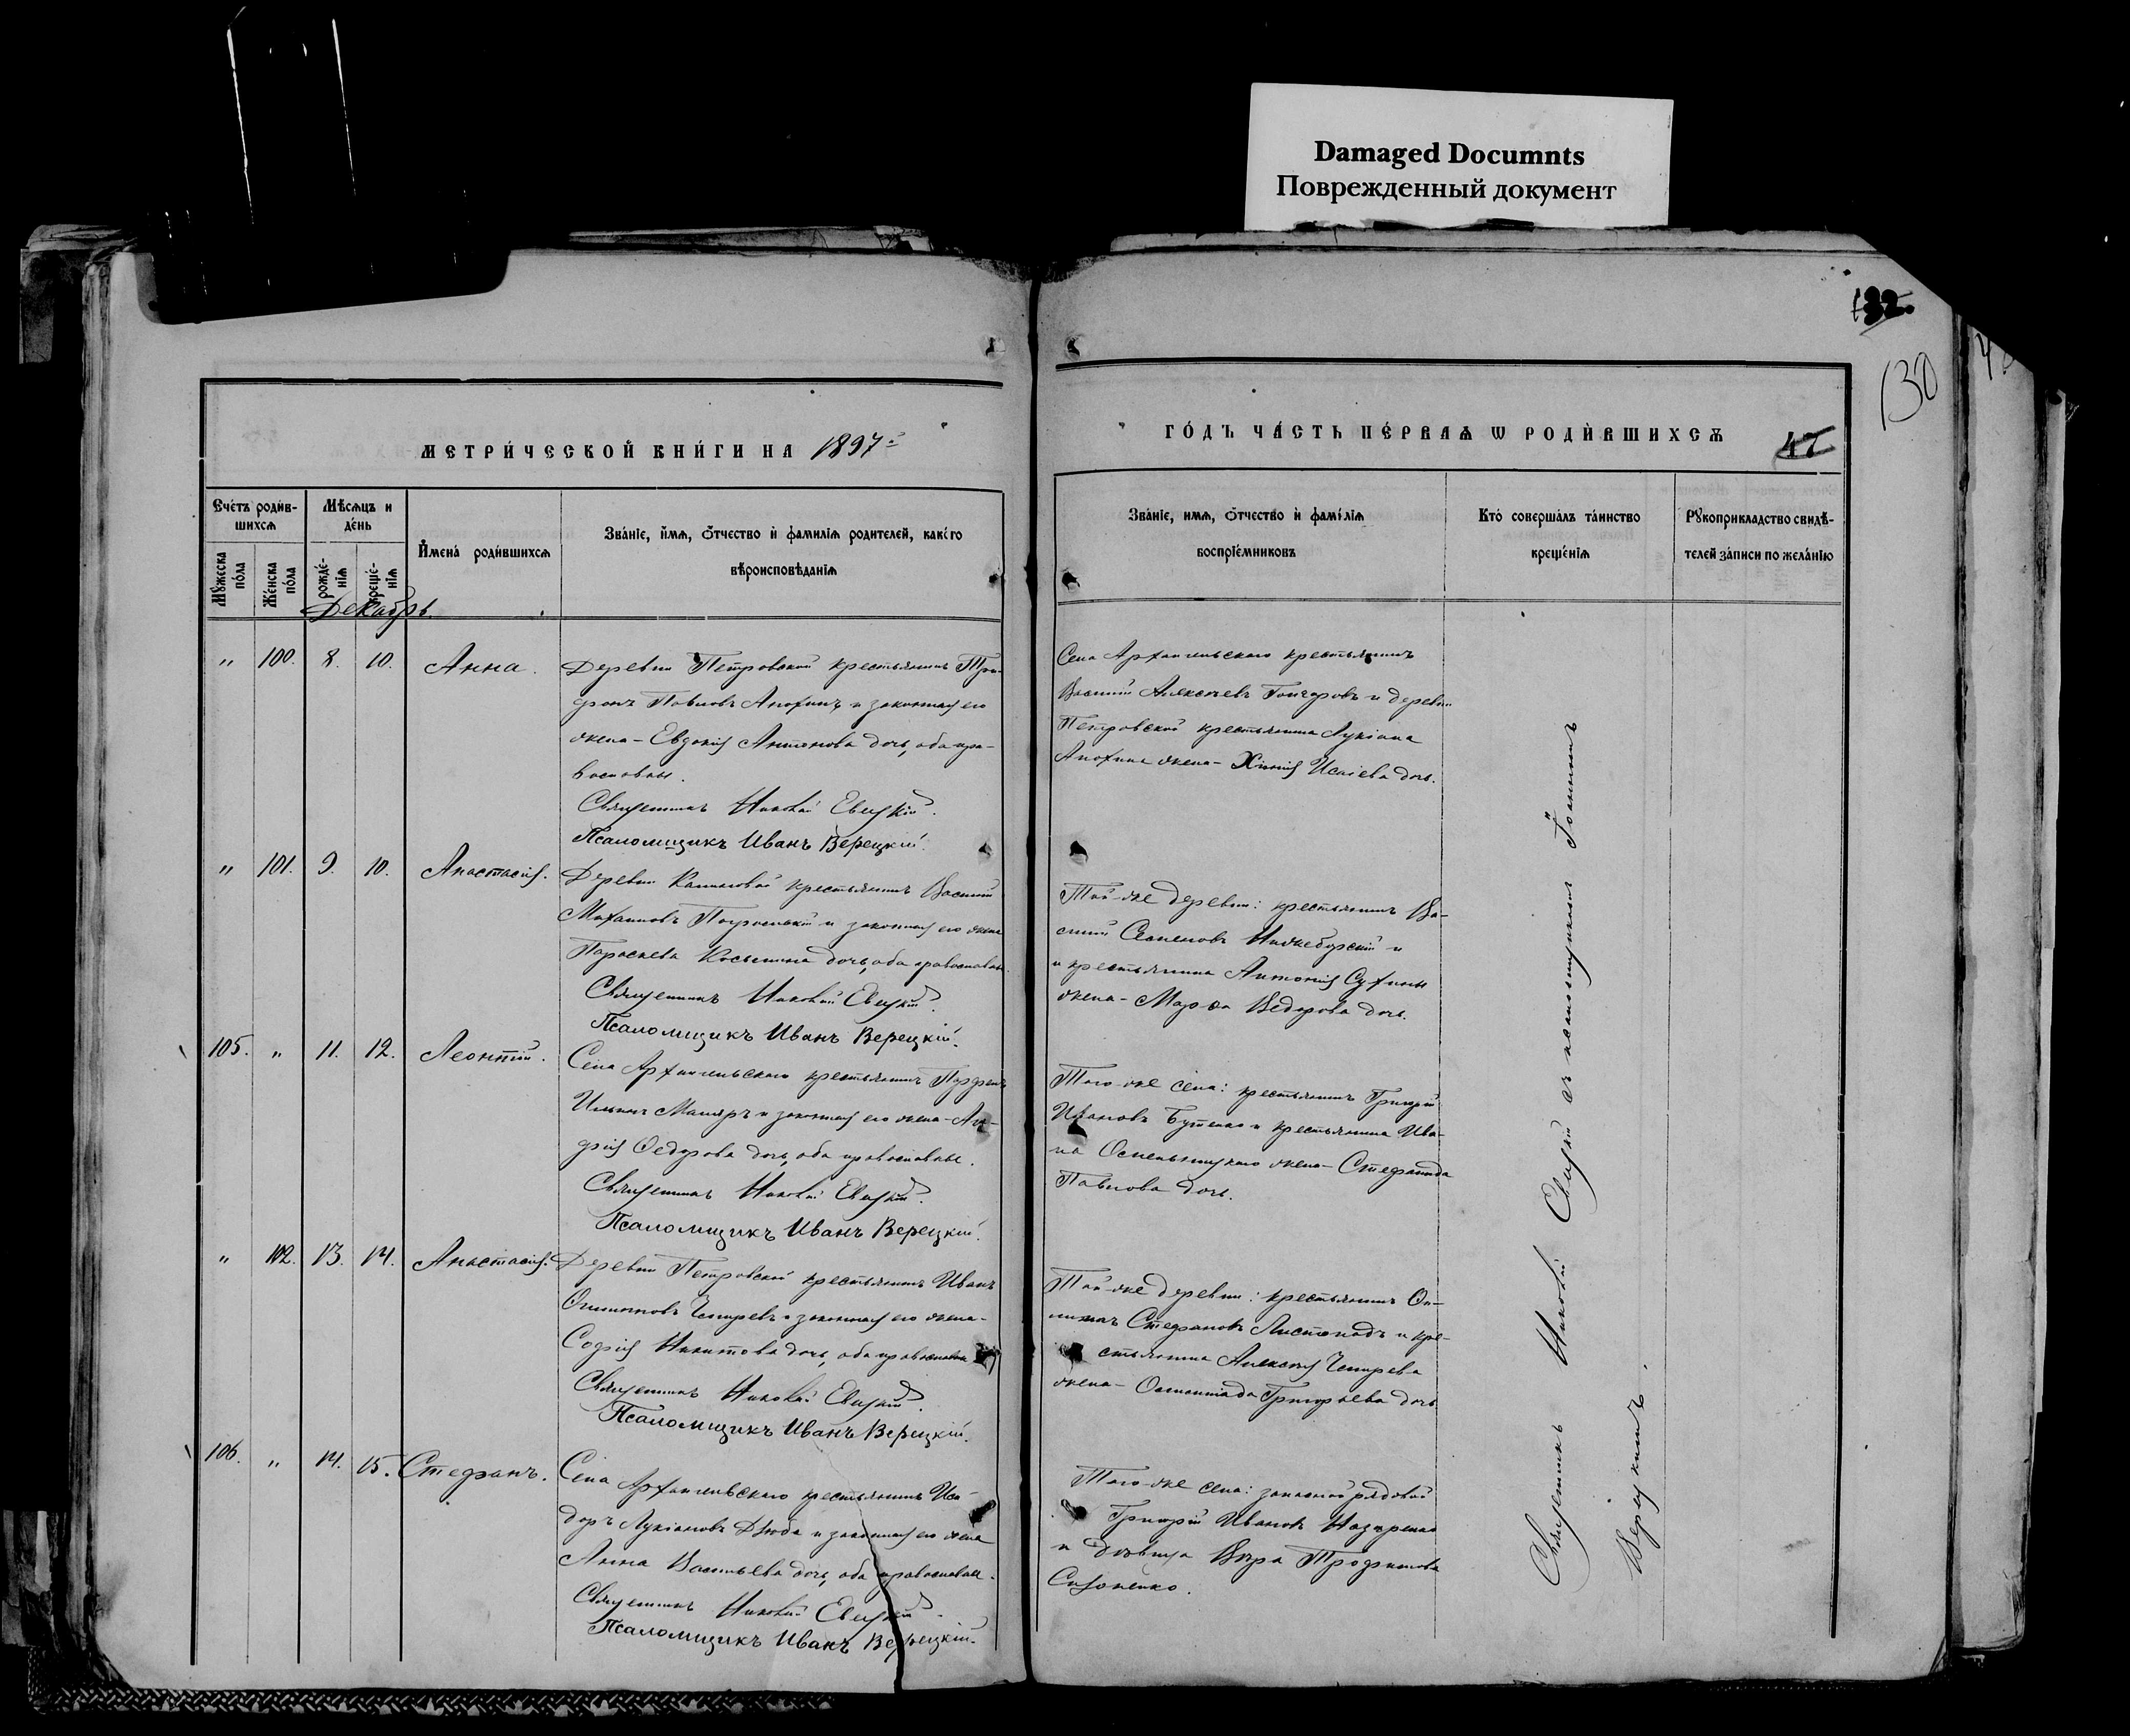 Damaged Documnts
Поврежденный документ
132.
130
МЕТРИ́ЧЕСКОЙ КНИ́ГИ НА 1897
ГО́ДЪ ЧА́СТЬ ПЕ́РВАѦ Ѡ РОДИ́ВШИХСѦ
47
Счéтъ роди́в-
шихсѧ
Мѣ́сѧцъ и
дéнь
Мꙋ́жеска
пóла
Жéнска
пóла
рождé-
нїѧ
крещé-
нїѧ
И҆мена̀ роди́вшихсѧ
Зва́нїе, и҆́мѧ, ѻ҆́тчество и҆ фамилїѧ родителей, како́го
вѣроисповѣ́данїѧ
Зва́нїе, имѧ, ѻ҆́тчество и҆ фамі́лїѧ
воспрїе́мниковъ
Кто̀ соверша́лъ та́инство
креще́нїѧ
Рꙋкоприкладство свидѣ́-
телей за́писи по жела́нїю
Декабрь.
" 100. 8. 10. Анна.
Деревни Петровской крестьянинъ Три-
фонъ Павловъ Анохинъ и законная его
жена - Евдокія Антонова дочь, оба пра-
вославны.
Священникъ Николай Евецкій.
Псаломщикъ Иванъ Верецкій.
Села Архангельскаго крестьянинъ
Василій Алексѣевъ Гончаровъ и деревни
Петровской крестьянина Лукіана
Анохина жена - Хіонія Исаіева дочь.
" 101. 9. 10. Анастасія.
Деревни крестьянинъ Василій
Михаиловъ и законная его жена
Параскева Косьмина дочь, оба православны.
Священникъ Николай Евецкій.
Псаломщикъ Иванъ Верецкій.
Той-же деревни: крестьянинъ Ва-
силій Семеновъ и
и крестьянина Антонія Сухины
жена - Марѳа Ѳедорова дочь.
105. " 11. 12. Леонтій.
Села Архангельскаго крестьянинъ Парфенъ
Ильинъ Маляръ и законная его жена -
Ѳедорова дочь, оба православны.
Священникъ Николай Евецкій.
Псаломщикъ Иванъ Верецкій.
Того-же села: крестьянинъ Григорій
Ивановъ Бутенко и крестьянина Ива-
на жена - Стефанида
Павлова дочь.
" 102. 13. 14. Анастасія.
Деревни Петровской крестьянинъ Иванъ
и законная его жена -
Софія Никитова дочь, оба православны
Священникъ Николай Евецкій.
Псаломщикъ Иванъ Верецкій.
Той-же деревни: крестьянинъ
Стефановъ Листопадъ и кре-
стьянина Алексѣя
жена - Григорьева дочь
106. " 14. 15. Стефанъ.
Села Архангельскаго крестьянинъ Иси-
доръ Лукіановъ Дзюба и законная его жена
Анна Васильева дочь, оба православны.
Священникъ Николай Евецкій.
Псаломщикъ Иванъ Верецкій.
Того-же села: запасной рядовой
Григорій Ивановъ Назаренко
и дѣвица Вѣра Трофимова
Священникъ Николай Евецкій съ псаломщикомъ Іоанномъ
Верецкимъ.